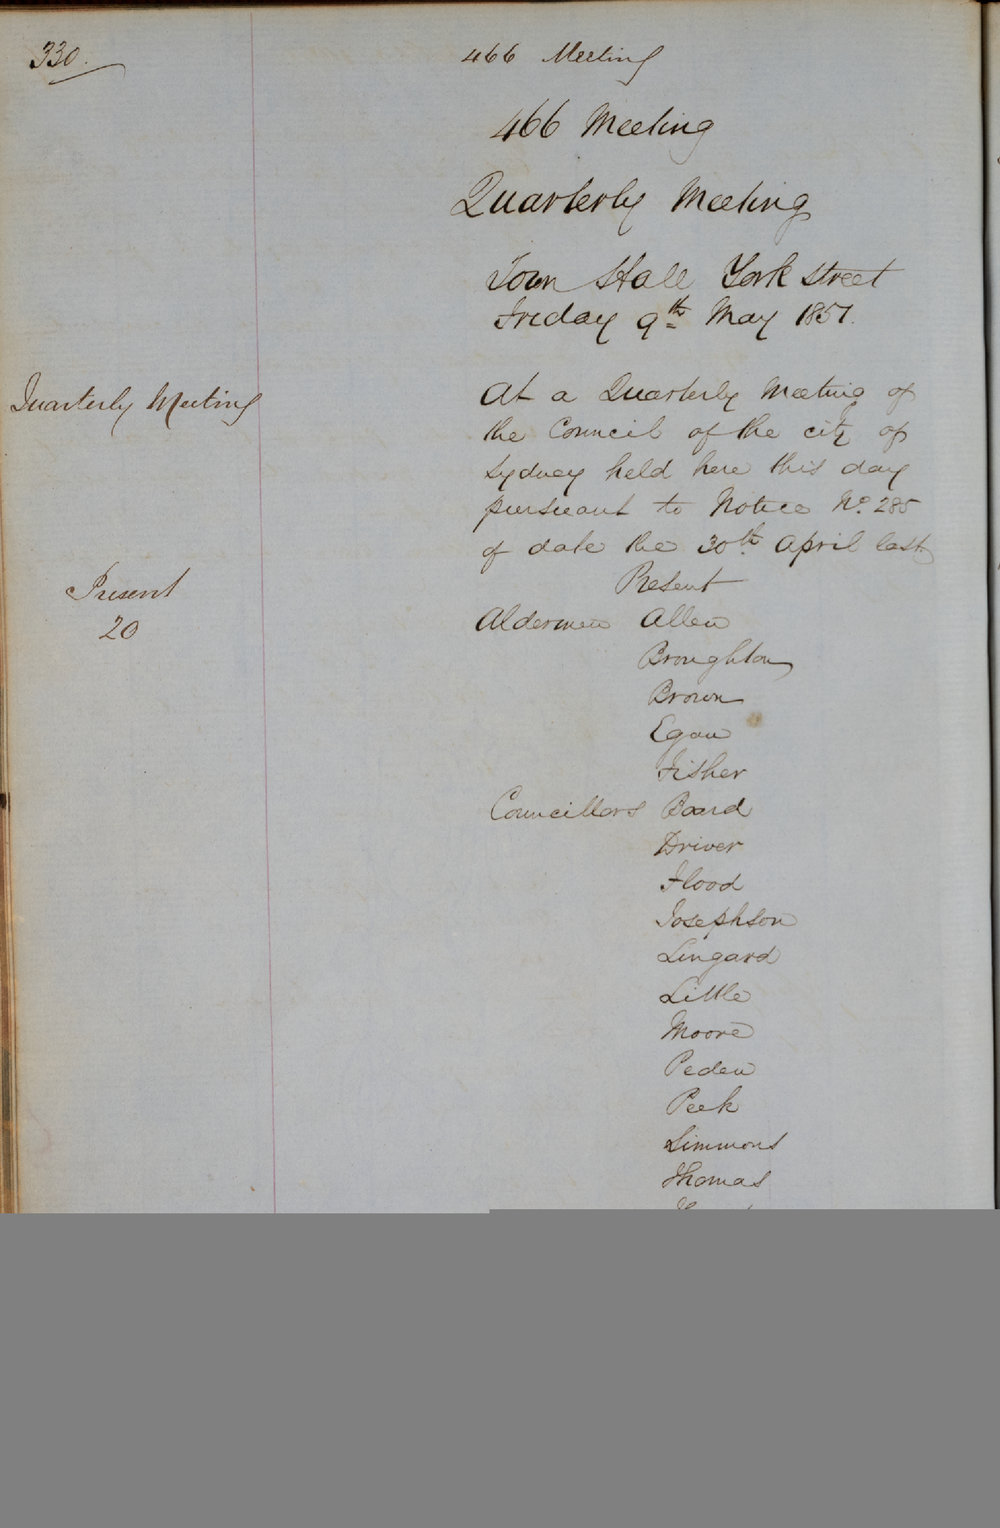 330.
466 Meeting
466 Meeting
Quarterly Meeting
Town Hall York Street
Friday 9th May 1851.
Quarterly Meeting
At a Quarterly Meeting of
the Council of the city of
Sydney held here this day
pursuant to Notice No. 285
of date the 30th April last
Present
Present
20
Aldermen Allen
Broughton
Brown
Egan
Fisher
Councillors Board
Driver
Flood
Josephson
Lingard
Little
Moore
Peden
Peek
Simmons
Thomas